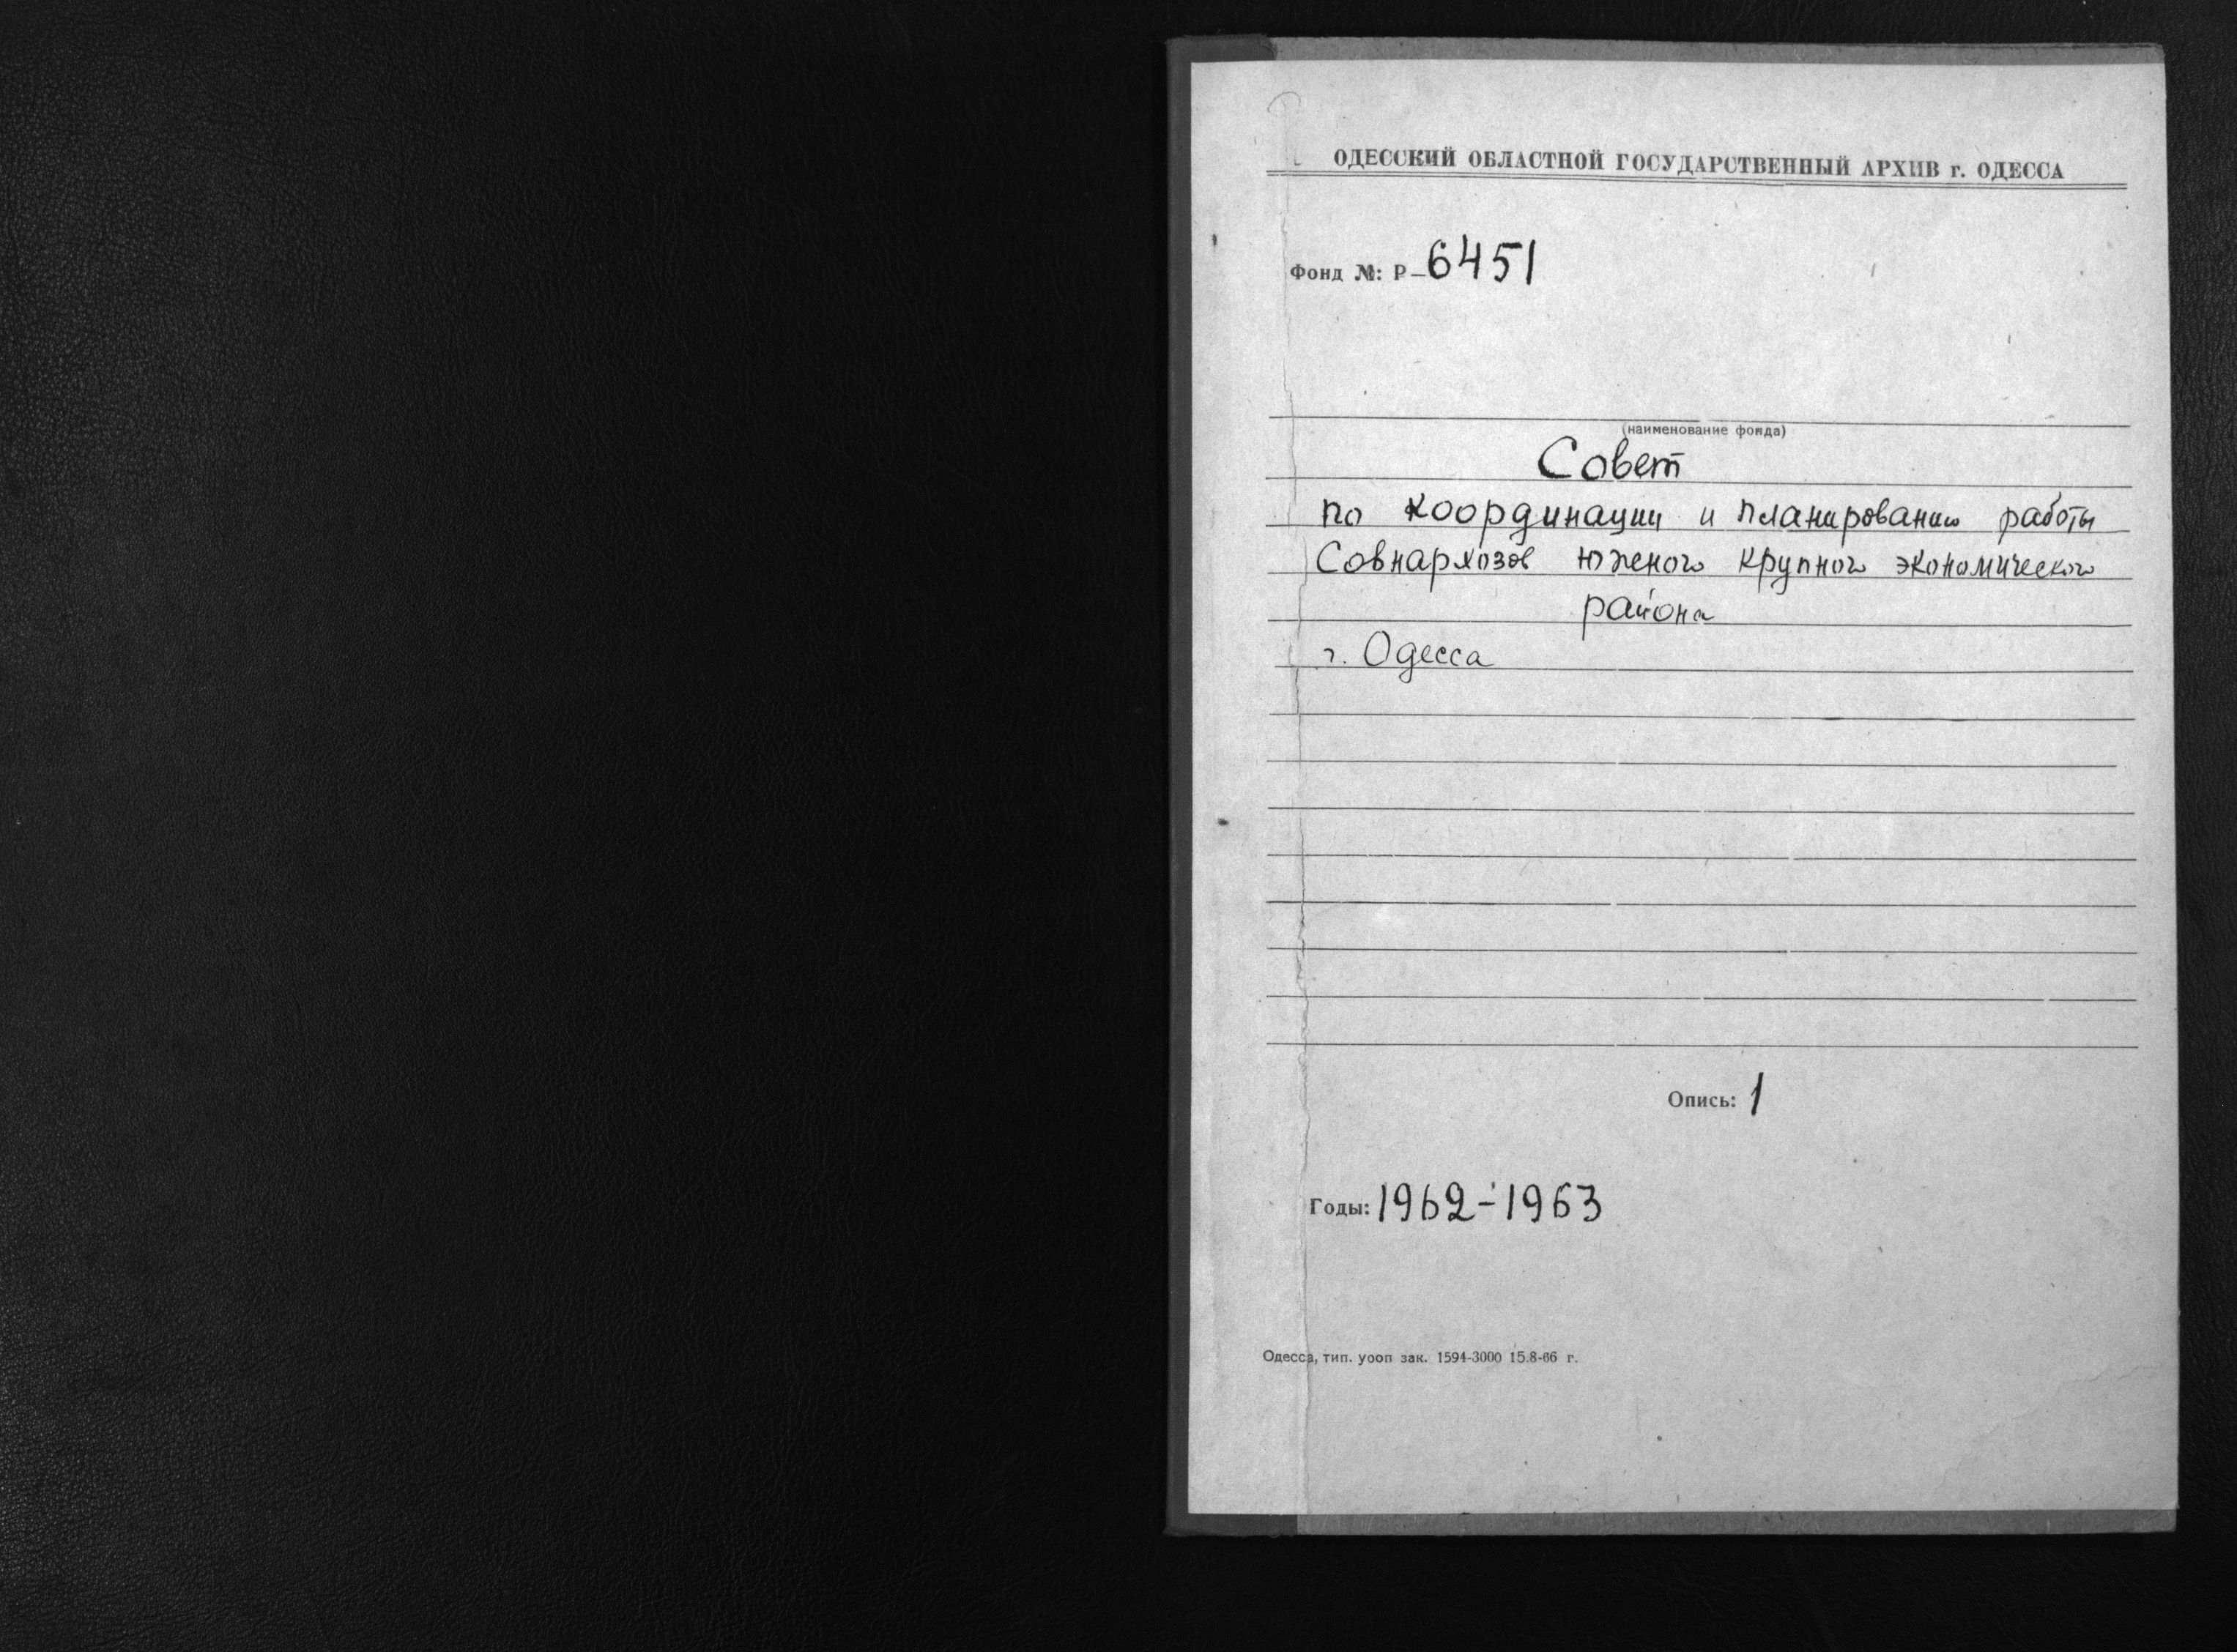 ОДЕССКИЙ ОБЛАСТНОЙ ГОСУДАРСТВЕННЫЙ АРХИВ г. ОДЕССА
Фонд №: Р-6451
(наименование фонда)
Совет
по координации и планированию работы
Совнархозов южного крупного экономического
района
г. Одесса
Опись: 1
Годы: 1962-1963
Одесса, тип. уооп зак. 1594-3000 15.8-66 г.